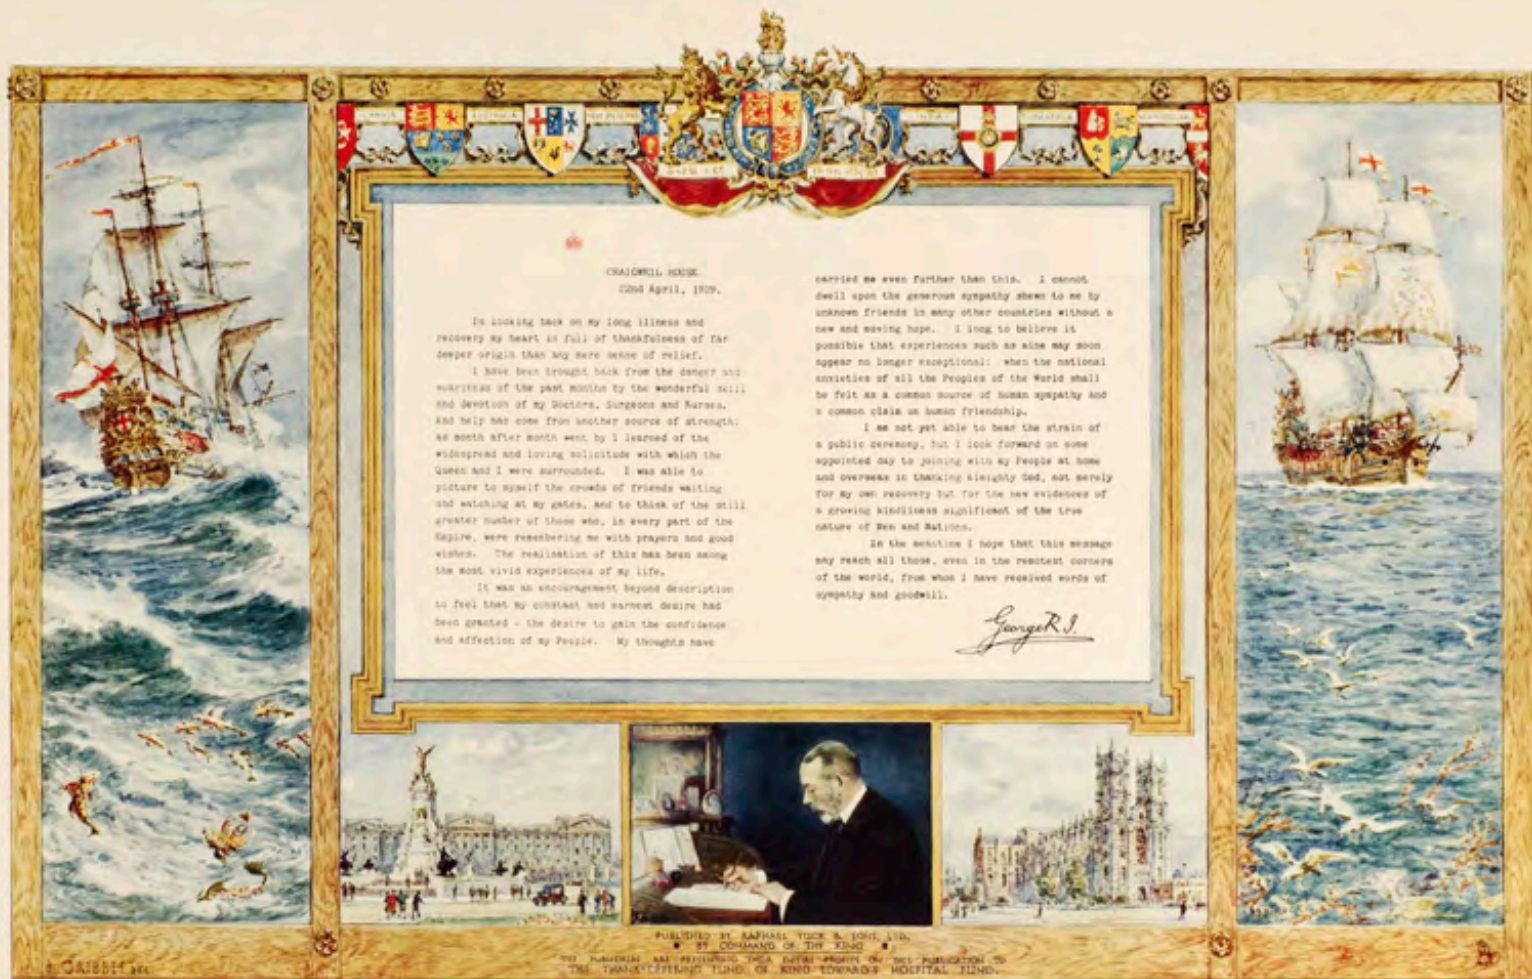 CANADA
AUSTRALIA
NEW ZEALAND
INDIA
CRAIGWEIL HOUSE.
22nd April, 1929.
In looking back on my long illness and
recovery my heart is full of thankfulness of far
deeper origin than any mere sense of relief.
I have been brought back from the danger and
weariness of the past months by the wonderful skill
and devotion of my Doctors, Surgeons and Nurses.
And help has come from another source of strength:
as month after month went by I learned of the
widespread and loving solicitude with which the
Queen and I were surrounded. I was able to
picture to myself the crowds of friends waiting
and watching at my gates, and to think of the still
greater number of those who, in every part of the
Empire, were remembering me with prayers and good
wishes. The realisation of this has been among
the most vivid experiences of my life.
It was an encouragement beyond description
to feel that my constant and earnest desire had
been granted - the desire to gain the confidence
and affection of my People. My thoughts have
carried me even further than this. I cannot
dwell upon the generous sympathy shewn to me by
unknown friends in many other countries without a
new and moving hope. I long to believe it
possible that experiences such as mine may soon
appear no longer exceptional: when the national
anxieties of all the Peoples of the World shall
be felt as a common source of human sympathy and
a common claim on human friendship.
I am not yet able to bear the strain of
a public ceremony, but I look forward on some
appointed day to joining with my People at home
and overseas in thanking Almighty God, not merely
for my own recovery but for the new evidences of
a growing kindliness significant of the true
nature of Men and Nations.
In the meantime I hope that this message
may reach all those, even in the remotest corners
of the world, from whom I have received words of
sympathy and goodwill.
George R.I.
PUBLISHED BY RAPHAEL TUCK & SONS, LTD.
BY COMMAND OF THE KING
THE PUBLISHERS ARE PRESENTING THEIR ENTIRE PROFITS ON THIS PUBLICATION TO
THE THANK-OFFERING FUND OF KING EDWARD'S HOSPITAL FUND.
GRIBBLE